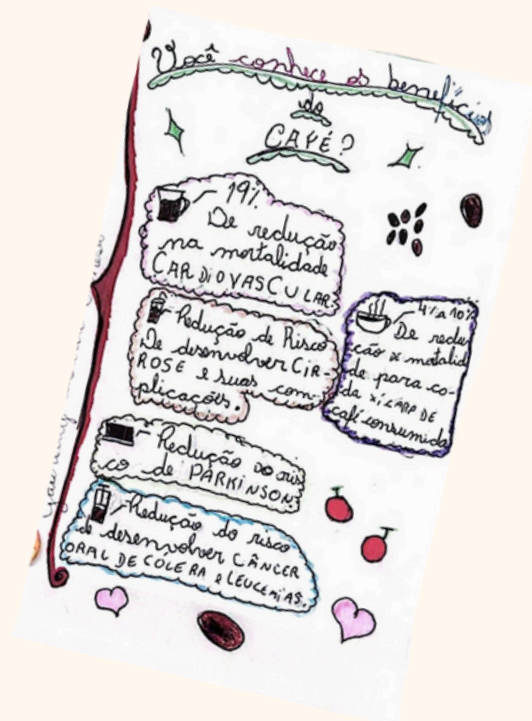 Você conhece os benefícios
do
CAFÉ?
19%
De redução
na mortalidade
CARDIOVASCULAR
Redução de Risco
De desenvolver CIR-
ROSE e suas com-
plicações.
4% a 10%
De redu-
ção
de para ca-
da XÍCARA DE
café consumida
Redução do ris
co de PARKINSON.
Redução do risco
de desenvolver CÂNCER
ORAL DE COLE RA e LEUCEMIAS.